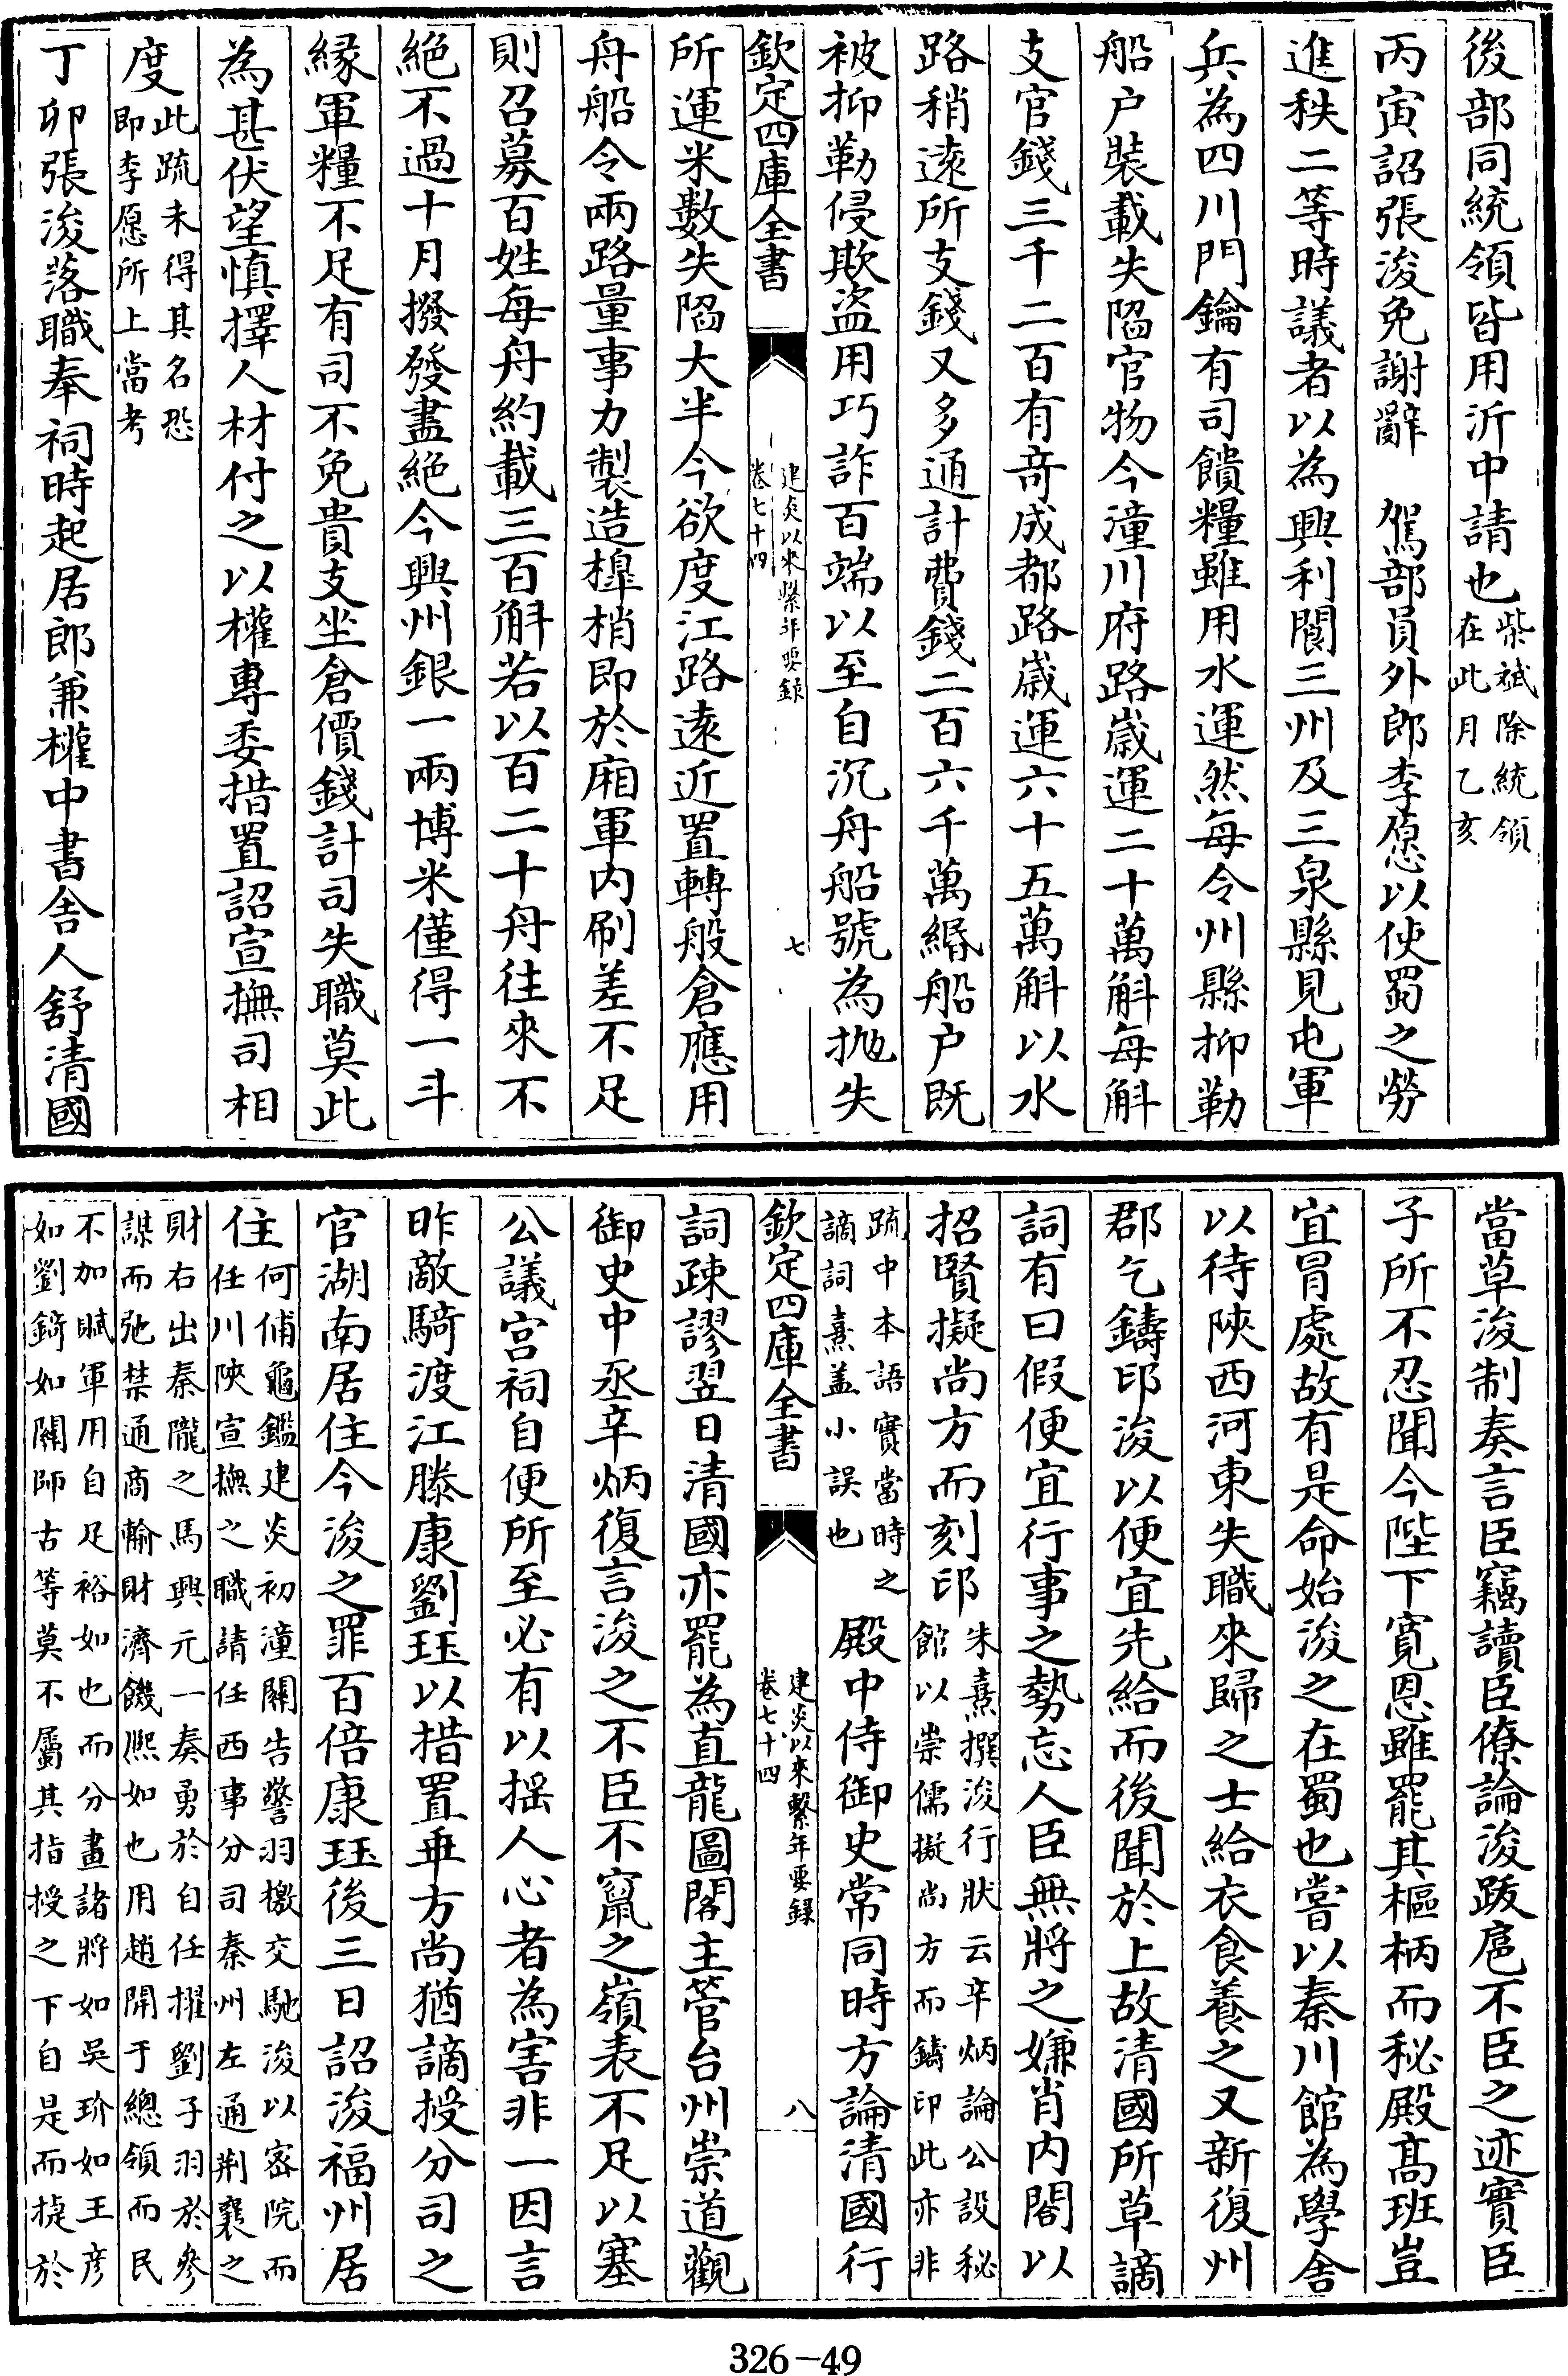 後部同統領皆用沂中請也柴斌除統領
在此月乙亥
丙寅詔張浚免謝辭　駕部員外郎李愿以使蜀之勞
進秩二等時議者以為興利閬三州及三泉縣見屯軍
兵為四川門鑰有司饋糧雖用水運然每令州縣抑勒
船户裝載失陷官物今潼川府路歲運二十萬斛每斛
支官錢三千二百有奇成都路歲運六十五萬斛以水
路稍遠所支錢又多通計費錢二百六千萬緡船户既
被抑勒侵欺盜用巧詐百端以至自沉舟船號為抛失
欽定四庫全書
建炎以來繫年要録
卷七十四
七
所運米數失陷大半今欲度江路遠近置轉般倉應用
舟船令兩路量事力製造槹梢即於廂軍内刷差不足
則召募百姓每舟約載三百斛若以百二十舟往來不
絶不過十月撥發盡絶今興州銀一兩博米僅得一斗
緣軍糧不足有司不免貴支坐倉價錢計司失職莫此
為甚伏望慎擇人材付之以權專委措置詔宣撫司相
度此疏未得其名恐
即李愿所上當考
丁卯張浚落職奉祠時起居郎兼權中書舍人舒清國
當草浚制奏言臣竊讀臣僚論浚跋扈不臣之迹實臣
子所不忍聞今陛下寛恩雖罷其樞柄而秘殿髙班豈
宜冐處故有是命始浚之在蜀也嘗以秦川館為學舍
以待陜西河東失職來歸之士給衣食養之又新復州
郡乞鑄印浚以便宜先給而後聞於上故清國所草謫
詞有曰假便宜行事之勢忘人臣無將之嫌肖内閣以
招賢擬尚方而刻印朱熹撰浚行狀云辛炳論公設秘
館以崇儒擬尚方而鑄印此亦非
疏中本語實當時之
謫詞熹盖小誤也　殿中侍御史常同時方論清國行
欽定四庫全書
建炎以來繫年要録
卷七十四
八
詞疎謬翌日清國亦罷為直龍圖閣主管台州崇道觀
御史中丞辛炳復言浚之不臣不竄之嶺表不足以塞
公議宫祠自便所至必有以揺人心者為害非一因言
昨敵騎渡江滕康劉珏以措置乖方尚猶謫授分司之
官湖南居住今浚之罪百倍康珏後三日詔浚福州居
住何俌龜鑑建炎初潼關告警羽檄交馳浚以宻院而
任川陜宣撫之職請任西事分司秦州左通荆襄之
財右出秦隴之馬興元一奏勇於自任擢劉子羽於參
謀而弛禁通商輸財濟饑熙如也用趙開于總領而民
不加賦軍用自足裕如也而分畫諸將如吳玠如王彦
如劉錡如關師古等莫不屬其指授之下自是而捷於
326-49